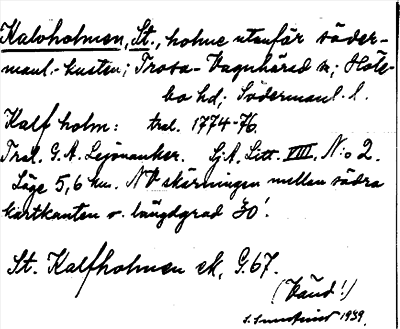 Kalvholmen, St., holme utanför söder-
manl.-kusten; Trosa-Vagnhärad sn; Höle-
bo hd; Södermanl. l.
Kalf holm: tral. 1774-76.
Tral. G.A. Lejonanker. SjA, Litt. VIII. N:o 2.
Läge 5,6 km. NV skärningen mellan södra
kartkanten o. längdgrad 30'.
St. Kalfholmen ek, G. 67.
(Vänd!)
S. Sundqvist 1939.